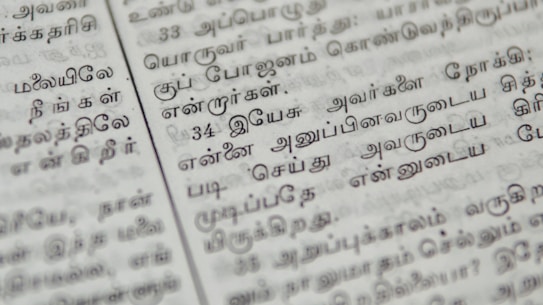 அவரை
ர்க்கதரிசி
மலையிலே
நீங்கள்
ஸ்தலத்திலே
என்கிறீர்
நான்
இந்த மலை
உண்டு
33 அப்பொழுது
யொருவர் பார்த்து: யாரா
குப் போஜனம் கொண்டுவந்திருப்பா
என்றார்கள்.
34 இயேசு அவர்களை நோக்கி:
என்னை அனுப்பினவருடைய சித்த
படி செய்து அவருடைய கிரி
முடிப்பதே என்னுடைய போ
யிருக்கிறது.
35 அறுப்புக்காலம் வருகிற
னும் நாலுமாதம் செல்லும் எ